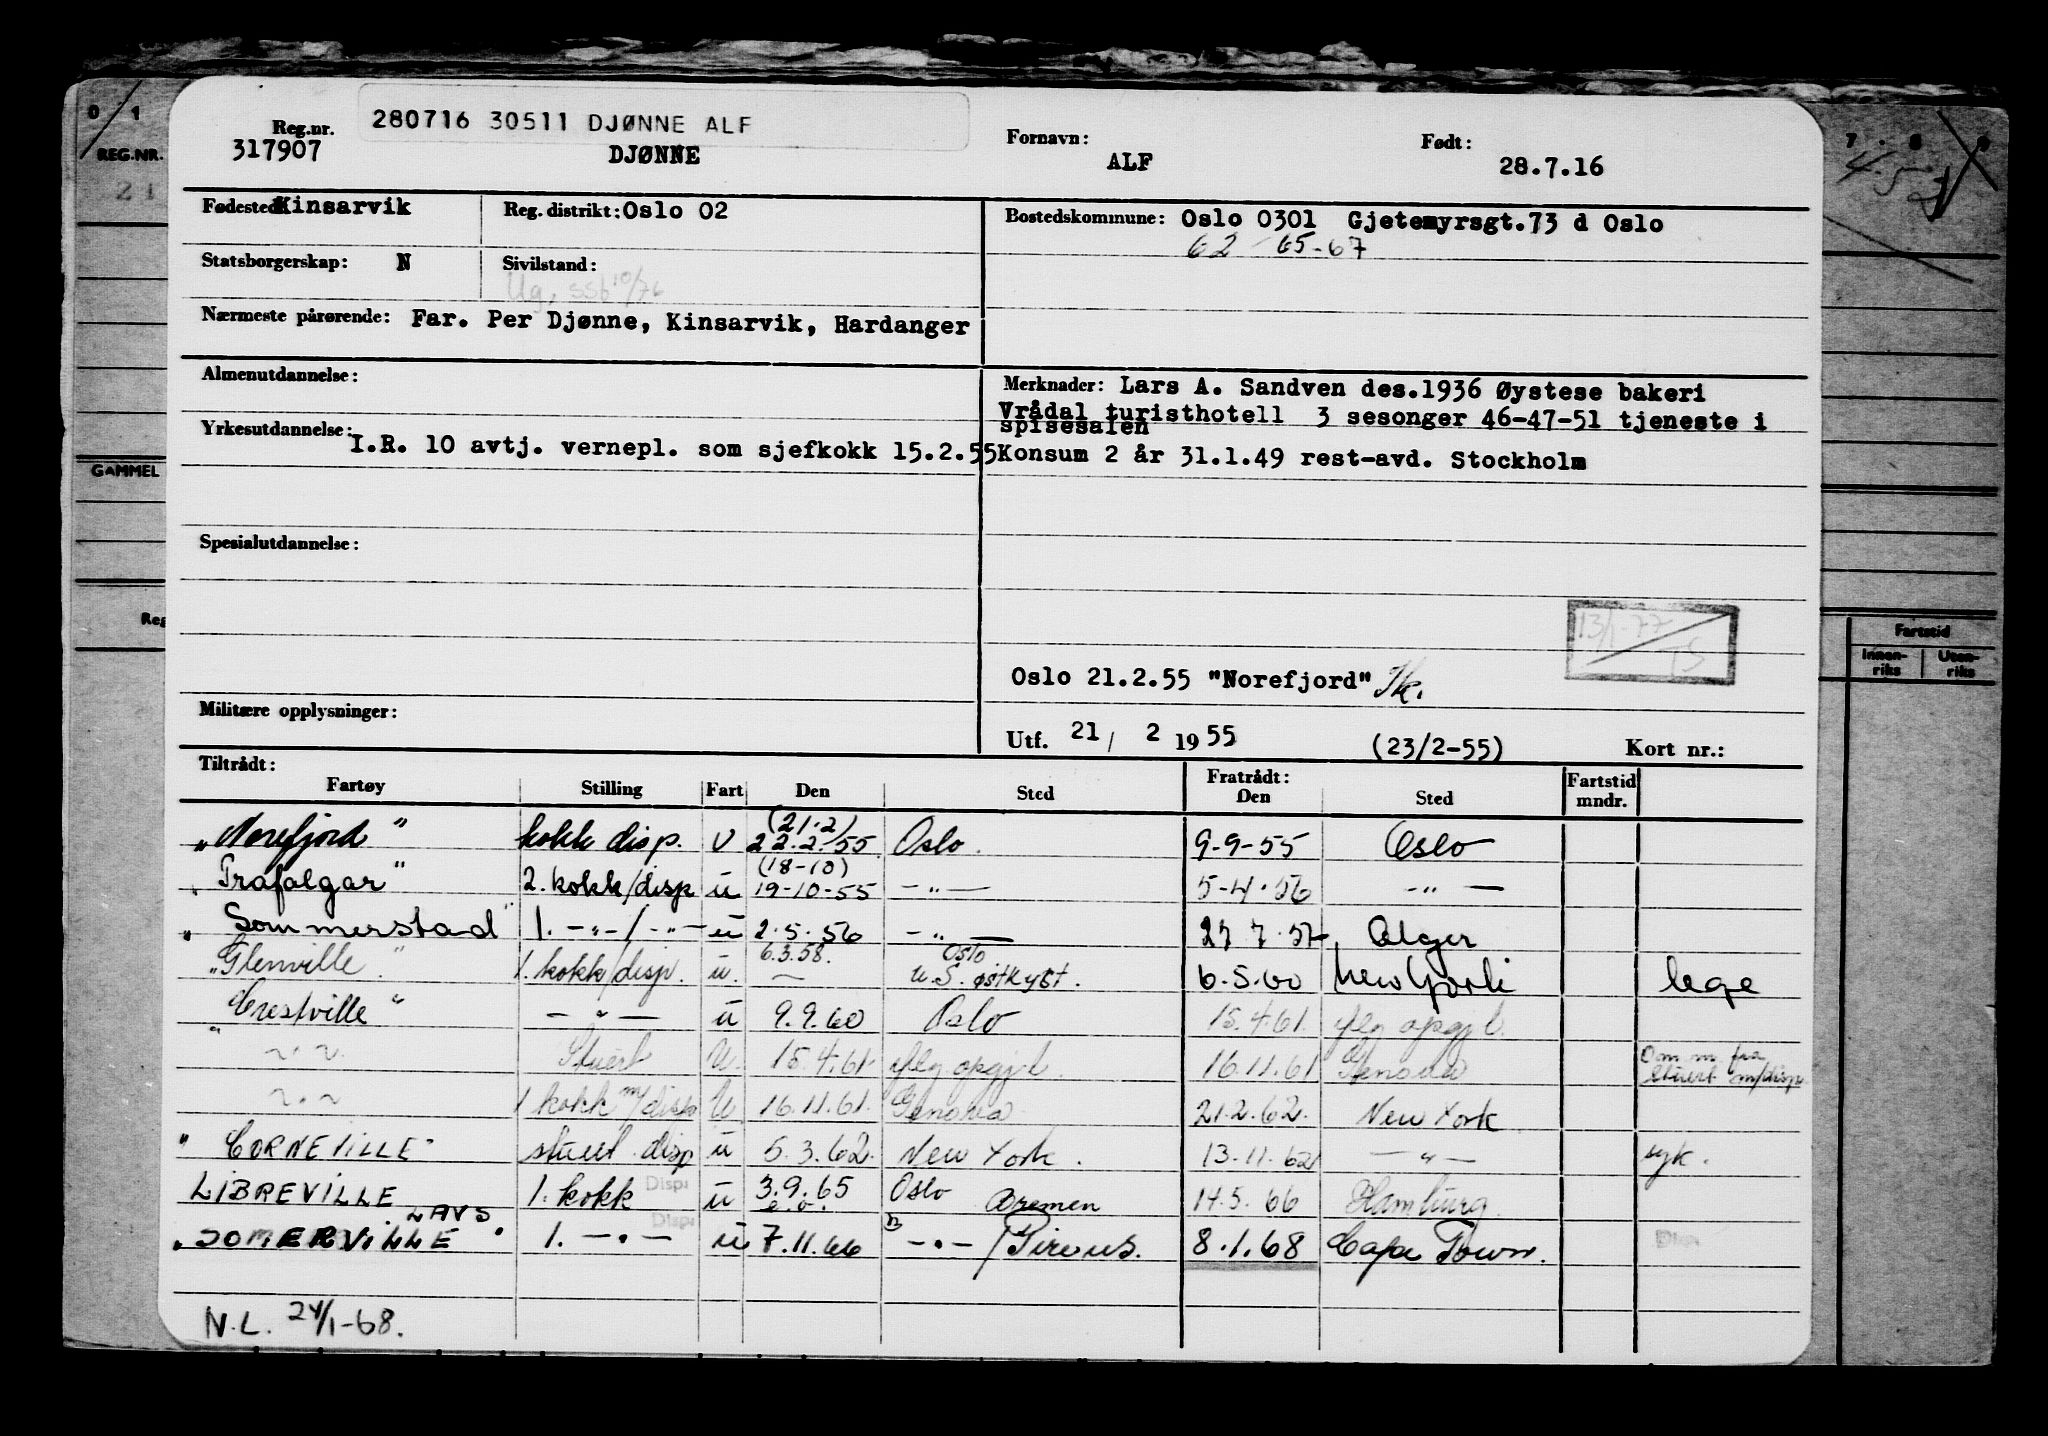 0 1
REG.NR.
21
GAMMEL
Reg
7 . 8 9
Fartstid
Innen-riks Uten-riks
280716 30511 DJØNNE ALF
Reg.nr. 317907 DJØNNE Fornavn: ALF Født: 28.7.16
Fødested: Kinsarvik Reg. distrikt: Oslo 02 Bostedskommune: Oslo 0301 Gjetemyrsgt.73 d Oslo
62 - 65-67
Statsborgerskap: N Sivilstand:
Ug, SSb 10/76
Nærmeste pårørende: Far. Per Djønne, Kinsarvik, Hardanger
Almenutdannelse:
Merknader: Lars A. Sandven des.1936 Øystese bakeri
Vrådal turisthotell 3 sesonger 46-47-51 tjeneste i
spisesalen
Yrkesutdannelse: I.R. 10 avtj. vernepl. som sjefkokk 15.2.55
Konsum 2 år 31.1.49 rest-avd. Stockholm
Spesialutdannelse:
13/1-77 TS
Oslo 21.2.55 "Norefjord"
Militære opplysninger:
Utf. 21 / 2 1955 (23/2-55) Kort nr.:
Tiltrådt: Fratrådt:
Fartøy Stilling Fart Den Sted Den Sted Fartstid mndr.
"Norefjord" kokk disp. U (21.2) 22.2./55 Oslo. 9-9-55 Oslo
"Trafalgar" 2. kokk/disp u (18-10) 19-10-55 -"- 5-4.56 -"-
"Sommerstad" 1. -"-/-"- u 2.5.56 -"- 27 7.57 Alger
"Glenville" 1. kokk/disp. u. 6.3.58. - Oslo U.S. østkyst. 6.5.60 New York lege
"Crestville" -"- u 9.9.60 Oslo 15.4.61. opgj.
-"- Stuert U. 15.4.61. opgj. 16.11.61 Genova Om m fra stuert m/disp
-"- 1 kokk m/disp U 16.11.61. Genova 21.2.62. New York
"CORNEVILLE" stuert disp u 5.3.62. New York. 13.11.62 -"- syk.
LIBREVILLE 1. kokk Disp: u 3.9.65 Oslo Bremen 14.5.66 Hamburg.
LAVS
"SOMERVILLE" 1. -"- Disp: u 7.11.66 -"-/Pireus. 8.1.68 Cape Town. Disp:
N.L. 24/1-68.